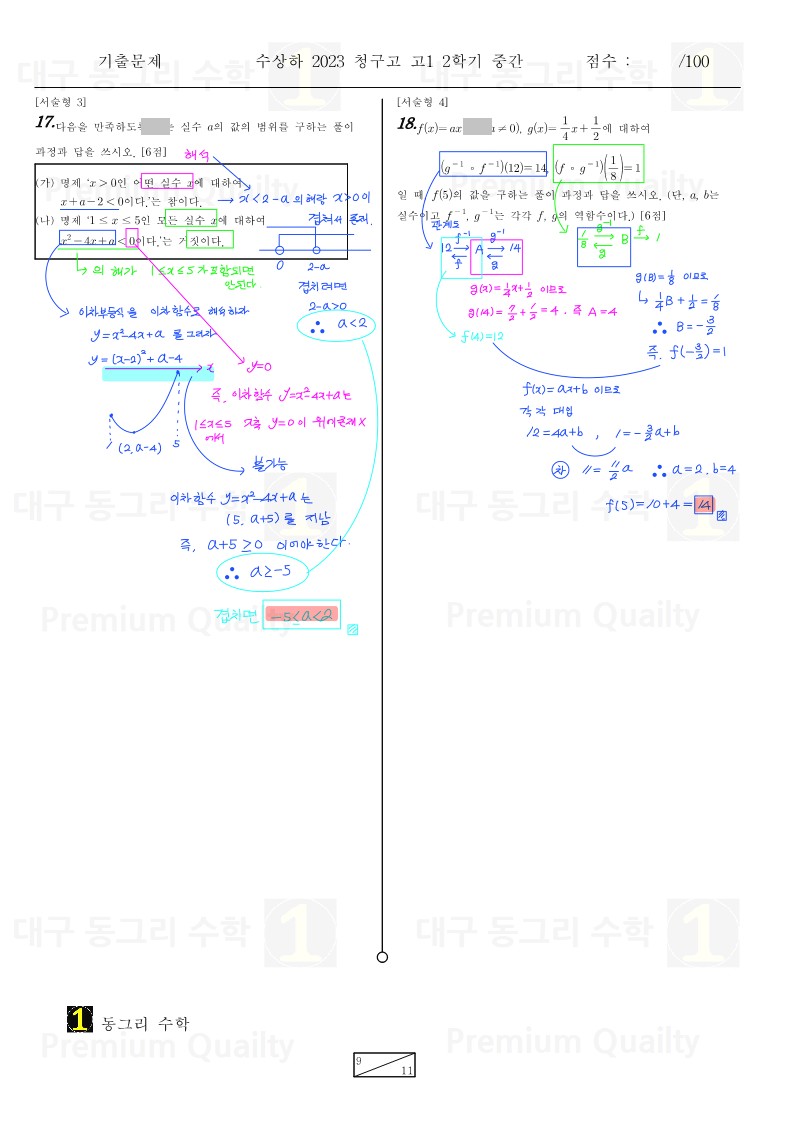 기출문제 수상하 2023 청구고 고1 2학기 중간 점수 : /100
[서술형 3]
17. 다음을 만족하도 실수 a의 값의 범위를 구하는 풀이
과정과 답을 쓰시오. [6점]
해석
(가) 명제 ‘x > 0인 어떤 실수 x에 대하여
x+a−2<0이다.’는 참이다.
→ x<2−a의 해랑 x>0이
겹쳐서 존재.
(나) 명제 ‘1 ≤ x ≤ 5인 모든 실수 x에 대하여
x²−4x+a<0이다.’는 거짓이다.
0 2-a
↳ 의 해가 1≤x≤5가 포함되면
안된다.
겹치려면
2-a>0
∴ a<2
이차부등식을 이차함수로 해석하자
y=x²-4x+a 를 그려라
y=(x-2)²+a-4
x
y=0
즉, 이차함수 y=x²-4x+a는
1≤x≤5 에서 x축 y=0이 위에존재X
1 (2, a-4) 5
불가능
이차함수 y=x²-4x+a는
(5, a+5)를 지남
즉, a+5≥0 이어야한다.
∴ a≥-5
겹치면 -5≤a<2
[서술형 4]
18. f(x)=ax ≠0), g(x)=1/4x+1/2에 대하여
(g⁻¹∘f⁻¹)(12)=14, (f∘g⁻¹)(1/8)=1
일 때, f(5)의 값을 구하는 풀이 과정과 답을 쓰시오. (단, a, b는
실수이고 f⁻¹, g⁻¹는 각각 f, g의 역함수이다.) [6점]
관계도
f⁻¹ g⁻¹
12 ⇄ A ⇄ 14
f g
g⁻¹ f
1/8 ⇄ B → 1
g
g(x)=1/4x+1/2 이므로
g(14)=7/2+1/2=4. 즉 A=4
f(4)=12
g(B)=1/8 이므로
↳ 1/4B+1/2=1/8
∴ B=-3/2
즉. f(-3/2)=1
f(x)=ax+b 이므로
각각 대입
12=4a+b , 1=-3/2a+b
차 11=11/2a ∴ a=2. b=4
f(5)=10+4=14
1 동그리 수학
9
11
대구 동그리 수학 1
대구 동그리 수학 1
Premium Quailty
Premium Quailty
대구 동그리 수학 1
대구 동그리 수학 1
Premium Quailty
Premium Quailty
대구 동그리 수학 1
대구 동그리 수학 1
Premium Quailty
Premium Quailty